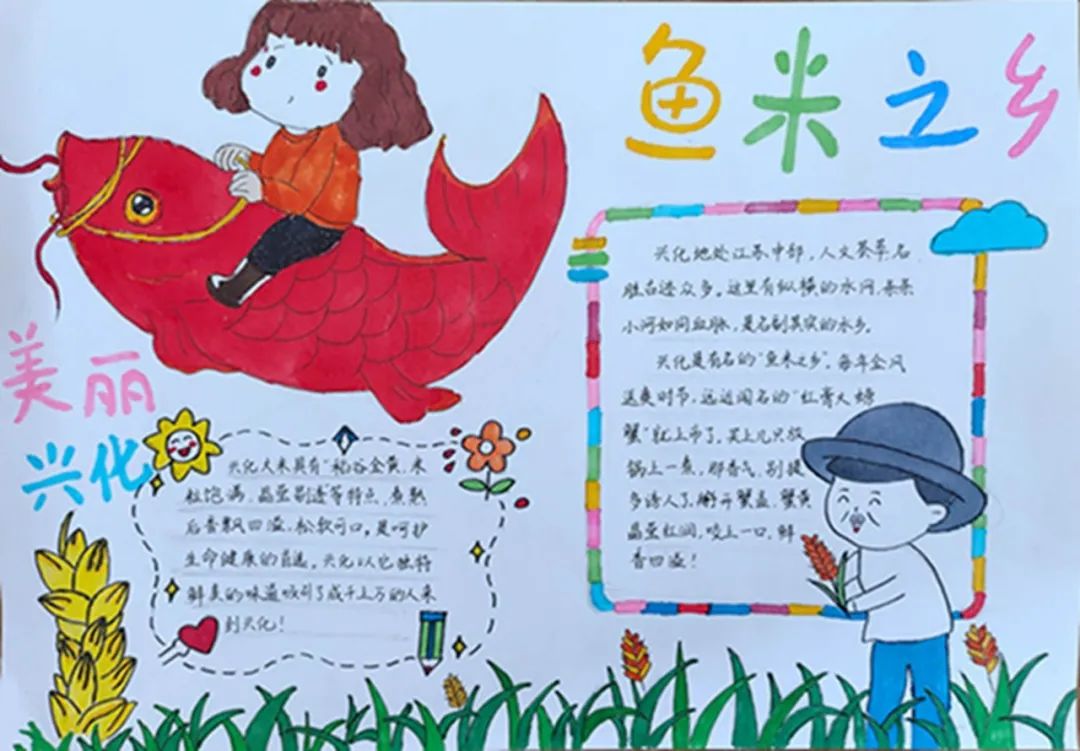 鱼米之乡
美丽
兴化
兴化地处江苏中部，人文荟萃名
胜古迹众多。这里有纵横的水网，条条
小河如同血脉，是名副其实的水乡。
兴化是有名的“鱼米之乡”。每年金风
送爽时节，远近闻名的“红膏大螃
蟹”就上市了，买上几只放
锅上一煮，那香气，别提
多诱人了，掰开蟹盖，蟹黄
晶莹红润，咬上一口，鲜
香四溢！
兴化大米具有“稻谷金黄、米
粒饱满、晶莹剔透等特点，煮熟
后香飘四溢，松软可口，是呵护
生命健康的首选。兴化以它独特
鲜美的味道吸引了成千上万的人来
到兴化！